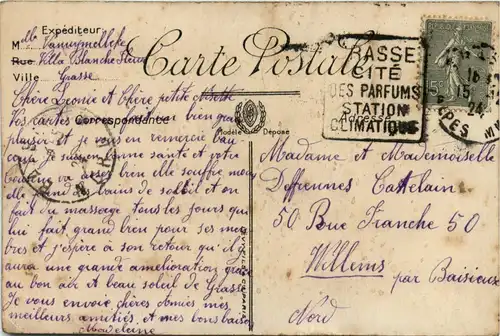 Expéditeur
Mlle
Rue Villa Blanche Fleur
Ville Grasse
Carte Postale
GRASSE
CITÉ
DES PARFUMS
STATION
CLIMATIQUE
16
15
24
Correspondance
Adresse
Modèle Déposé
Chère Léonie et Chère petite
Vos cartes font bien
plaisir et je vous en remercie
Je suis en bonne santé et votre
va assez bien elle souffre
elle des bains de soleil et on
fait du massage tous les jours qui
lui fait grand bien pour ses
et j'espère à son retour qu'il y
aura une grande amélioration grâce
au bon air et beau soleil de Grasse
Je vous envoie chères amies mes
meilleurs amitiés, et mes bons baisers
Madeleine
Madame et Mademoiselle
Deffrennes Cattelain
50 Rue Franche 50
Willems
par Baisieux
Nord